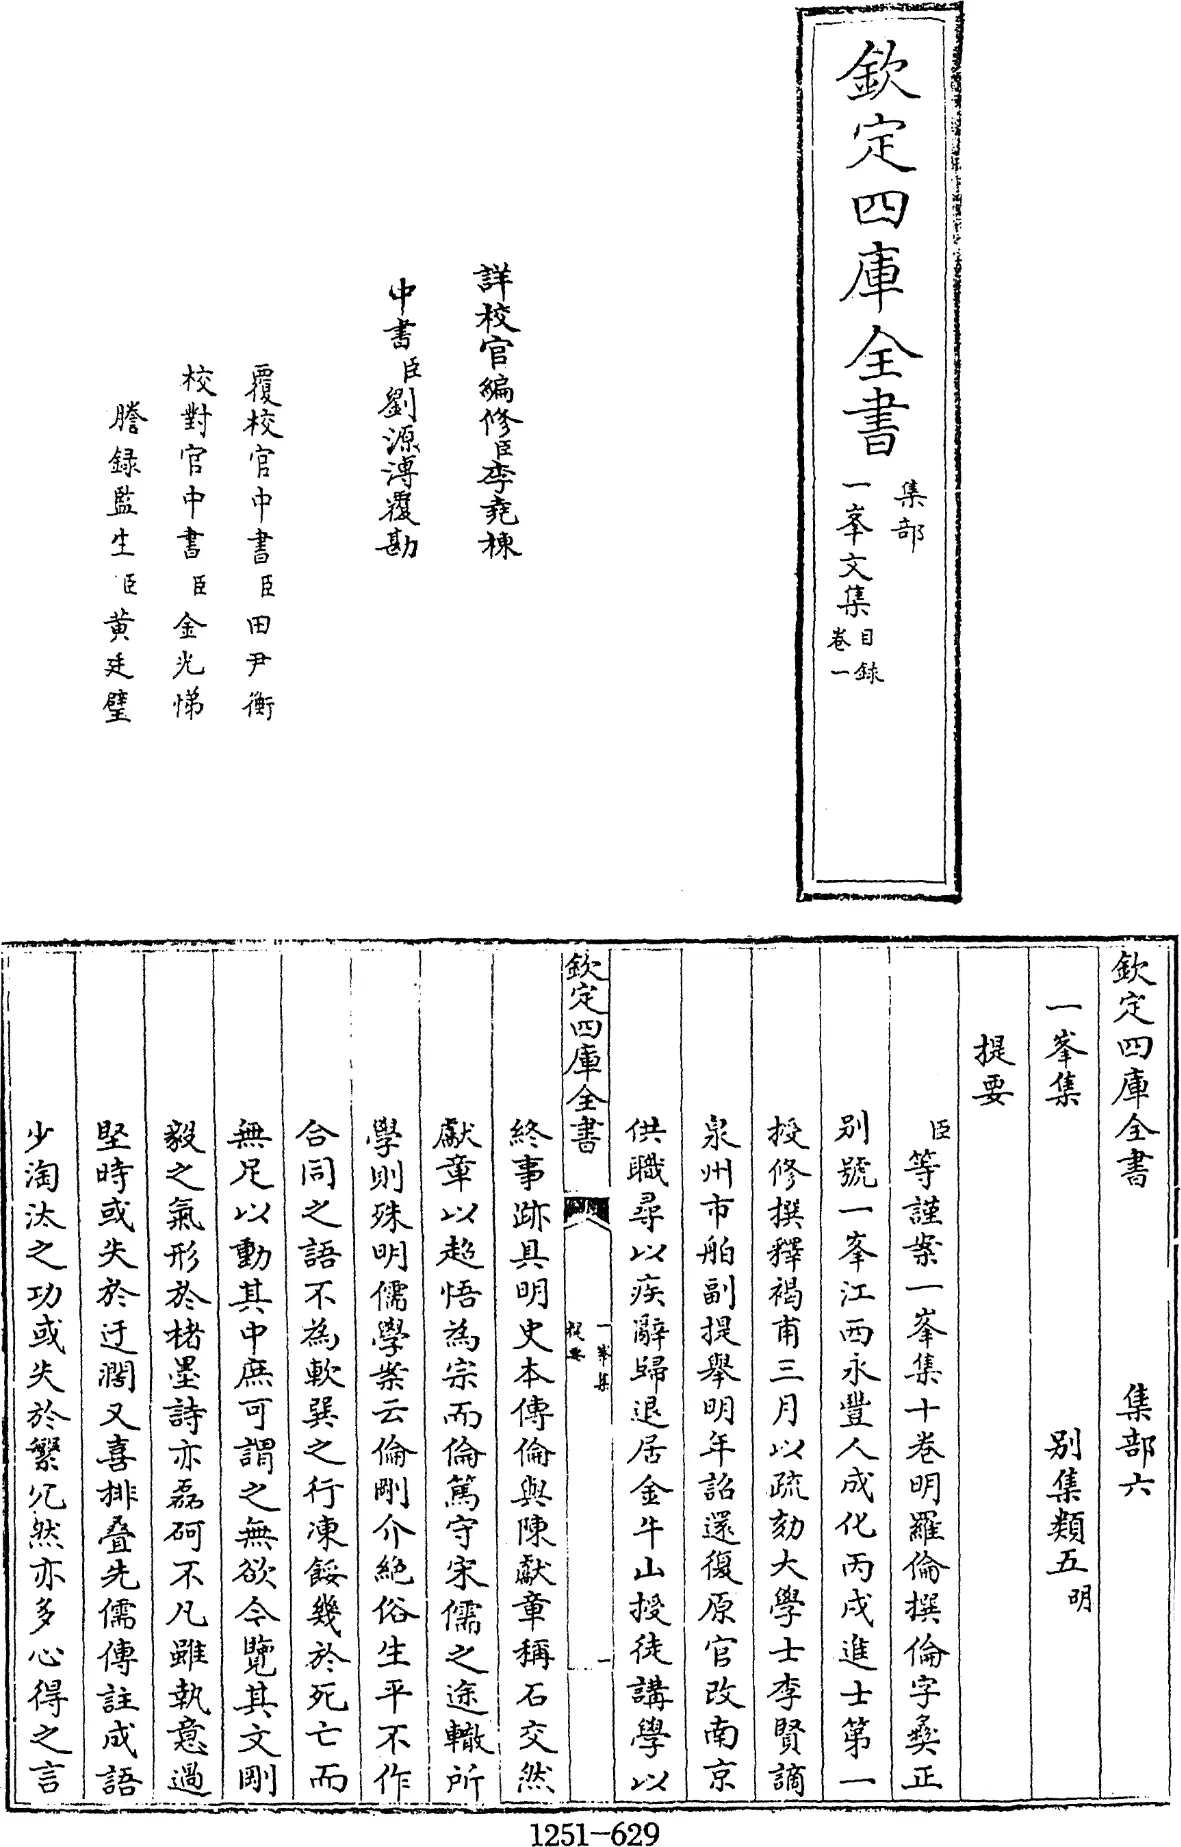 欽定四庫全書
集部
一峯文集
目録
卷一
詳校官編修臣李堯棟
中書臣劉源溥覆勘
覆校官中書臣田尹衡
校對官中書臣金光悌
謄録監生臣黄廷璧
欽定四庫全書 集部六
一峯集 别集類五明
提要
臣等謹案一峯集十卷明羅倫撰倫字彜正
别號一峯江西永豐人成化丙戌進士第一
授修撰釋褐甫三月以疏劾大學士李賢謫
泉州市舶副提舉明年詔還復原官改南京
供職尋以疾辭歸退居金牛山授徒講學以
欽定四庫全書
一峯集
提要
一
終事跡具明史本傳倫與陳獻章稱石交然
獻章以超悟為宗而倫篤守宋儒之途轍所
學則殊明儒學案云倫剛介絶俗生平不作
合同之語不為軟巽之行凍餒幾於死亡而
無足以動其中庶可謂之無欲今覽其文剛
毅之氣形於楮墨詩亦磊砢不凡雖執意過
堅時或失於迂濶又喜排叠先儒傳註成語
少淘汰之功或失於繁冗然亦多心得之言
1251-629